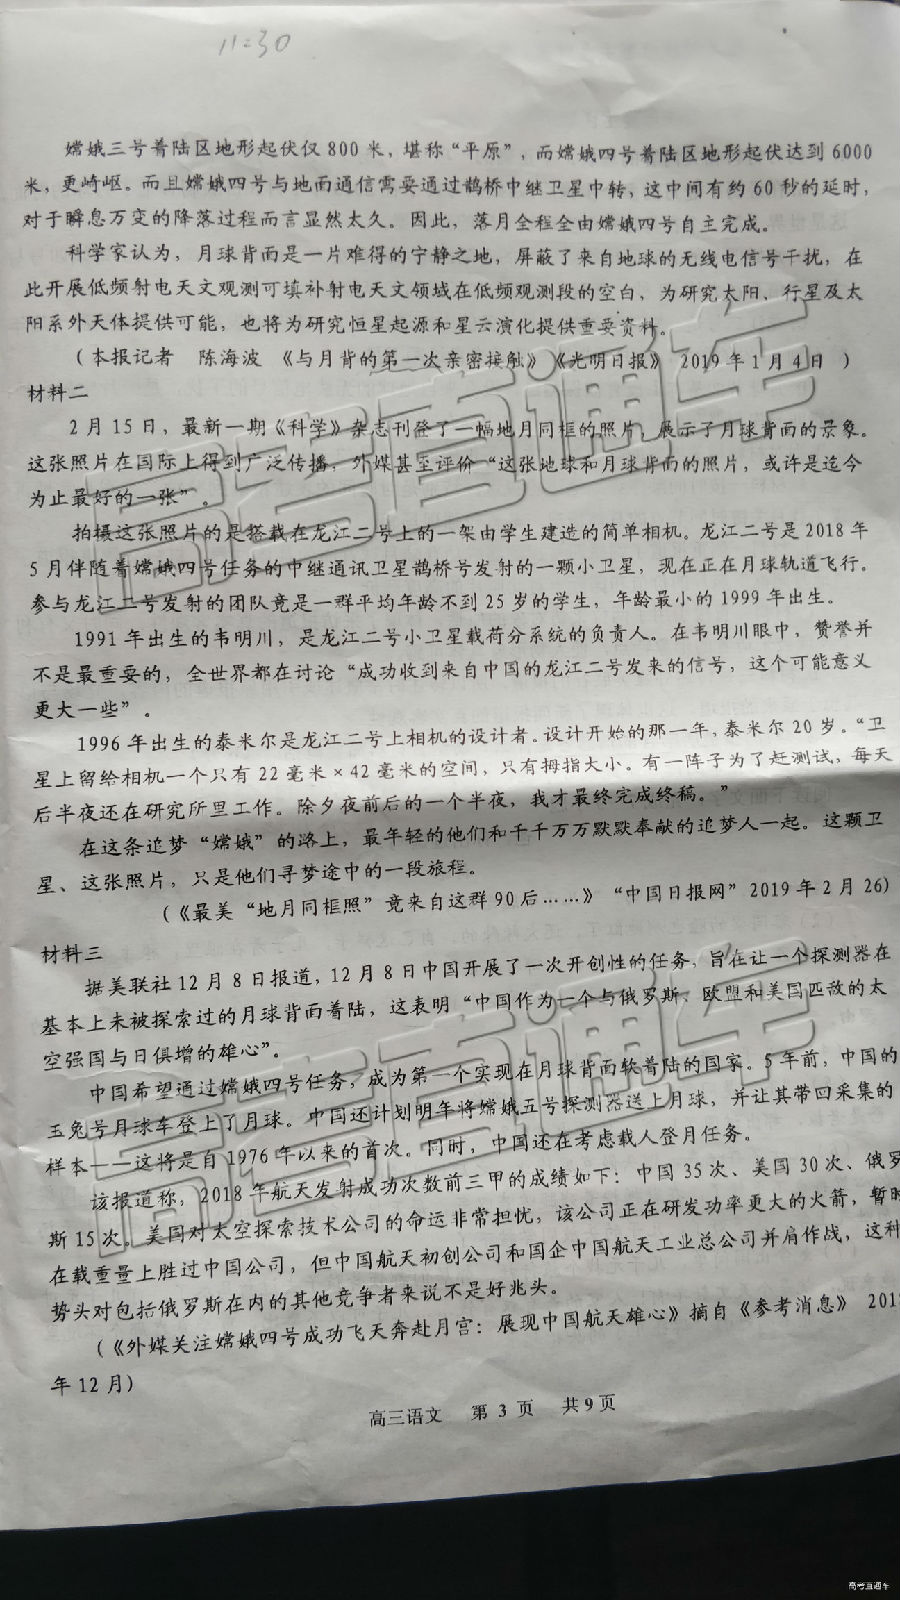 11:30
嫦娥三号着陆区地形起伏仅800米，堪称“平原”，而嫦娥四号着陆区地形起伏达到6000
米，更崎岖。而且嫦娥四号与地面通信需要通过鹊桥中继卫星中转，这中间有约60秒的延时，
对于瞬息万变的降落过程而言显然太久。因此，落月全程全由嫦娥四号自主完成。
科学家认为，月球背面是一片难得的宁静之地，屏蔽了来自地球的无线电信号干扰，在
此开展低频射电天文观测可填补射电天文领域在低频观测段的空白，为研究太阳、行星及太
阳系外天体提供可能，也将为研究恒星起源和星云演化提供重要资料。
（本报记者 陈海波 《与月背的第一次亲密接触》《光明日报》 2019年1月4日 ）
材料二
2月15日，最新一期《科学》杂志刊登了一幅地月同框的照片，展示了月球背面的景象。
这张照片在国际上得到广泛传播，外媒甚至评价“这张地球和月球背面的照片，或许是迄今
为止最好的一张”。
拍摄这张照片的是搭载在龙江二号上的一架由学生建造的简单相机。龙江二号是2018年
5月伴随着嫦娥四号任务的中继通讯卫星鹊桥号发射的一颗小卫星，现在正在月球轨道飞行。
参与龙江二号发射的团队竟是一群平均年龄不到25岁的学生，年龄最小的1999年出生。
1991年出生的韦明川，是龙江二号小卫星载荷分系统的负责人。在韦明川眼中，赞誉并
不是最重要的，全世界都在讨论“成功收到来自中国的龙江二号发来的信号，这个可能意义
更大一些”。
1996年出生的泰米尔是龙江二号上相机的设计者。设计开始的那一年，泰米尔20岁。“卫
星上留给相机一个只有22毫米×42毫米的空间，只有拇指大小。有一阵子为了赶测试，每天
后半夜还在研究所里工作。除夕夜前后的一个半夜，我才最终完成终稿。”
在这条追梦“嫦娥”的路上，最年轻的他们和千千万万默默奉献的追梦人一起。这颗卫
星、这张照片，只是他们寻梦途中的一段旅程。
（《最美“地月同框照”竟来自这群90后……》“中国日报网”2019年2月26）
材料三
据美联社12月8日报道，12月8日中国开展了一次开创性的任务，旨在让一个探测器在
基本上未被探索过的月球背面着陆，这表明“中国作为一个与俄罗斯、欧盟和美国匹敌的太
空强国与日俱增的雄心”。
中国希望通过嫦娥四号任务，成为第一个实现在月球背面软着陆的国家。5年前，中国的
玉兔号月球车登上了月球。中国还计划明年将嫦娥五号探测器送上月球，并让其带回采集的
样本——这将是自1976年以来的首次。同时，中国还在考虑载人登月任务。
该报道称，2018年航天发射成功次数前三甲的成绩如下：中国35次、美国30次、俄罗
斯15次。美国对太空探索技术公司的命运非常担忧，该公司正在研发功率更大的火箭，暂时
在载重量上胜过中国公司，但中国航天初创公司和国企中国航天工业总公司并肩作战，这种
势头对包括俄罗斯在内的其他竞争者来说不是好兆头。
（《外媒关注嫦娥四号成功飞天奔赴月宫：展现中国航天雄心》摘自《参考消息》 201
年12月）
高三语文 第 3 页 共9页
高考直通车
高考直通车
高考直通车